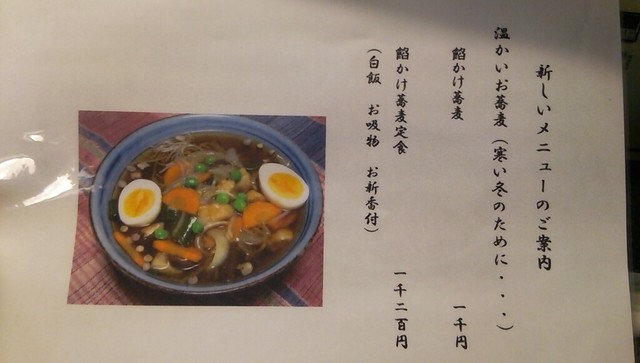 新しいメニューのご案内
温かいお蕎麦(寒い冬のために・・・)
餡かけ蕎麦 一千円
餡かけ蕎麦定食 一千二百円
(白飯 お吸物 お新香付)